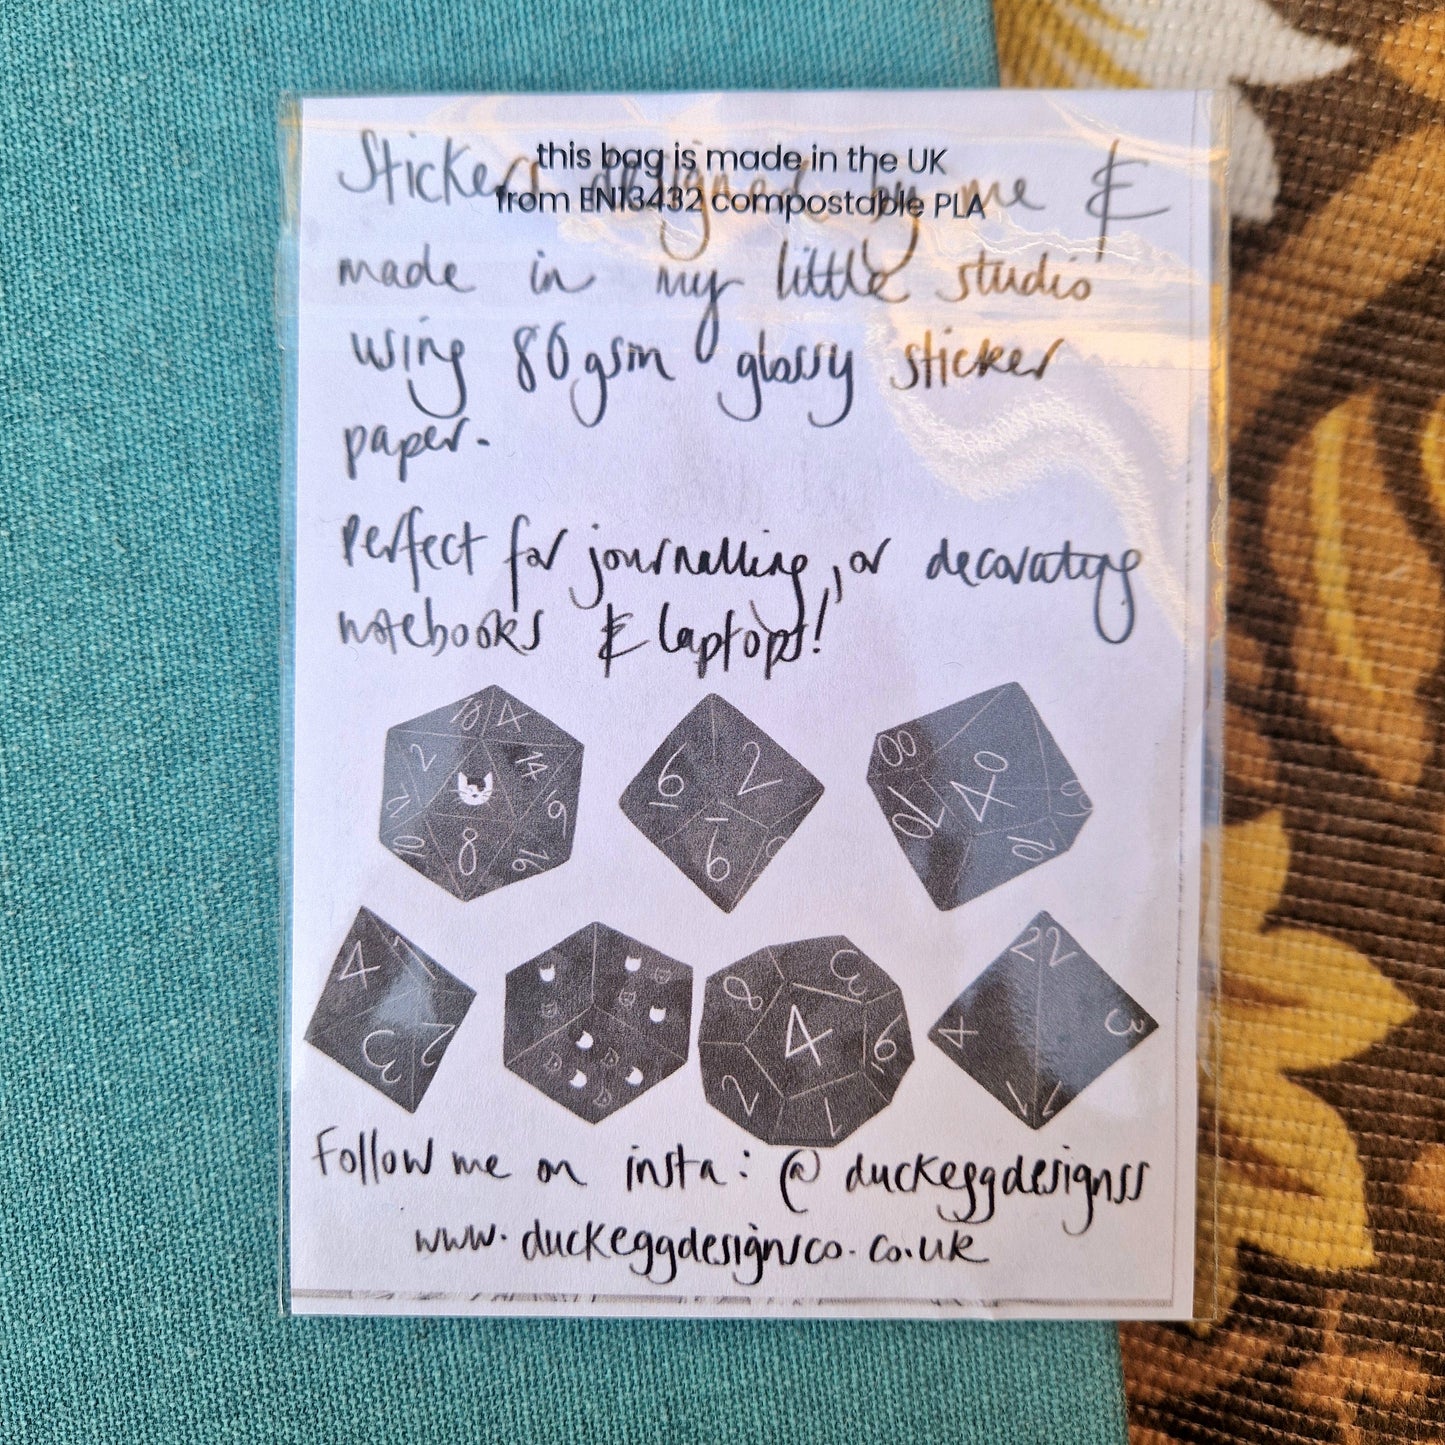 this bag is made in the UK
from EN13432 compostable PLA
Stickers designed by me &
made in my little studio
using 80gsm glossy sticker
paper.
Perfect for journalling, or decorating
notebooks & laptops!
18 4
2 14
8 16
10
6 2
6
00 40
70 10
4
3 2
8 3
4 6
2 1
22
4 3
1 1
Follow me on insta: @duckeggdesignss
www.duckeggdesignsco.co.uk